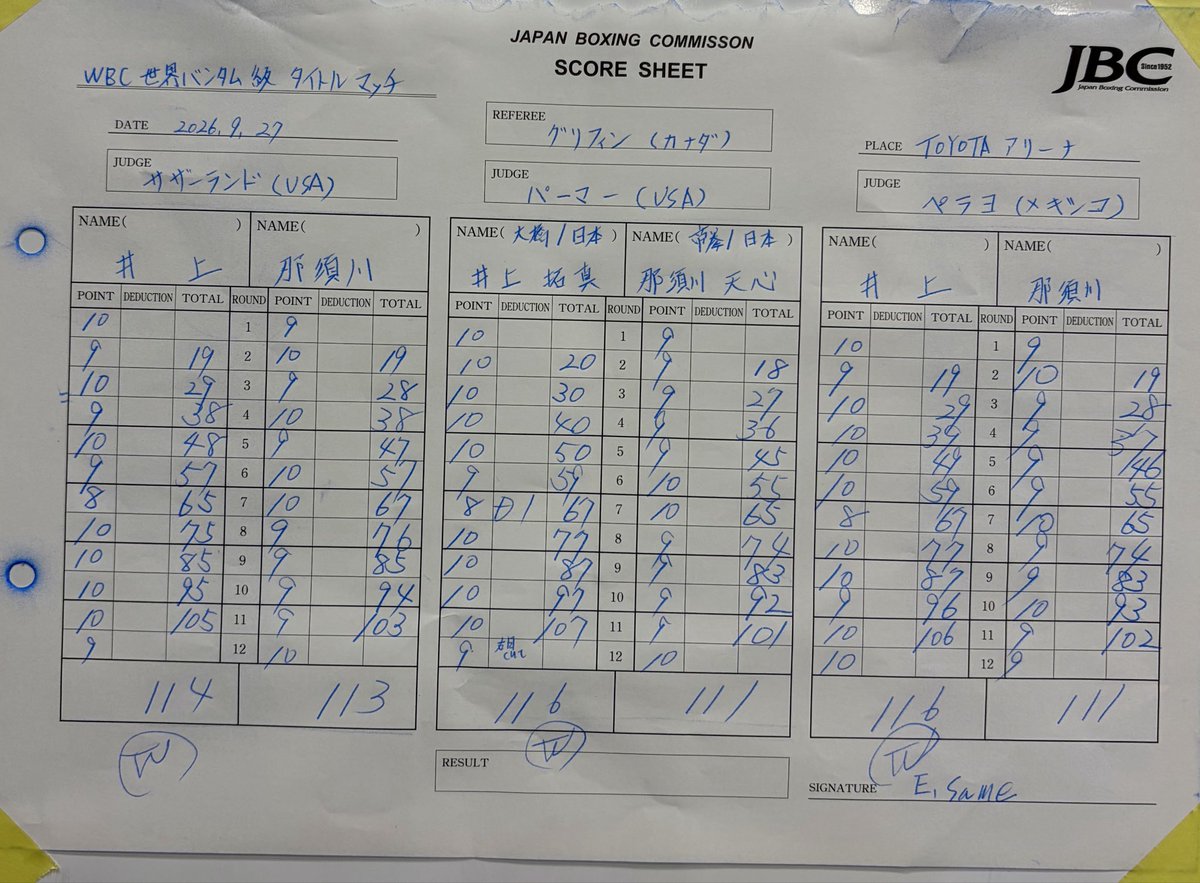 JAPAN BOXING COMMISSON
SCORE SHEET
JBC
Since1952
Japan Boxing Commission
WBC 世界バンタム級 タイトルマッチ
DATE 2026.9.27
REFEREE グリフィン(カナダ)
PLACE TOYOTA アリーナ
JUDGE サザーランド(USA)
JUDGE パーマー(USA)
JUDGE ペラヨ(メキシコ)
NAME( ) NAME( ) NAME(大橋/日本) NAME(帝拳/日本) NAME( ) NAME( )
井上 那須川 井上拓真 那須川天心 井上 那須川
POINT DEDUCTION TOTAL ROUND POINT DEDUCTION TOTAL POINT DEDUCTION TOTAL ROUND POINT DEDUCTION TOTAL POINT DEDUCTION TOTAL ROUND POINT DEDUCTION TOTAL
10 1 9 10 1 9 10 1 9
9 19 2 10 19 10 20 2 9 18 9 19 2 10 19
10 29 3 9 28 10 30 3 9 27 10 29 3 9 28
9 38 4 10 38 10 40 4 9 36 10 39 4 9 37
10 48 5 9 47 10 50 5 9 45 10 49 5 9 46
9 57 6 10 57 9 59 6 10 55 10 59 6 9 55
8 65 7 10 67 8 D1 67 7 10 65 8 67 7 10 65
10 75 8 9 76 10 77 8 9 74 10 77 8 9 74
10 85 9 9 85 10 87 9 9 83 10 87 9 9 83
10 95 10 9 94 10 97 10 9 92 9 96 10 10 93
10 105 11 9 103 10 107 11 9 101 10 106 11 9 102
9 12 10 9 12 10 10 12 9
114 113 116 111 116 111
RESULT
SIGNATURE E. Same